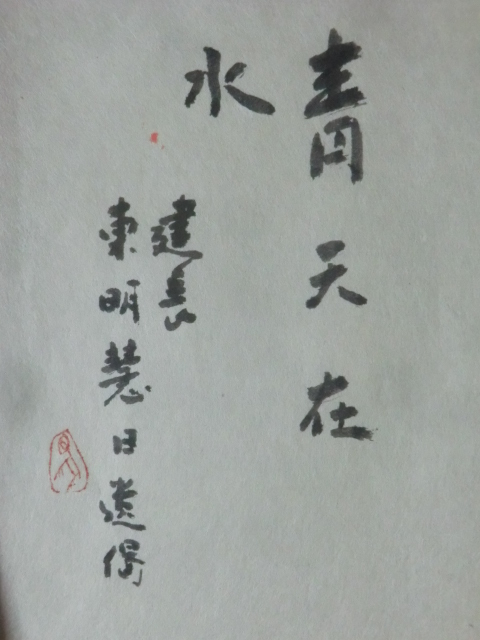 青天在
水
建長
東明慧日遺偈